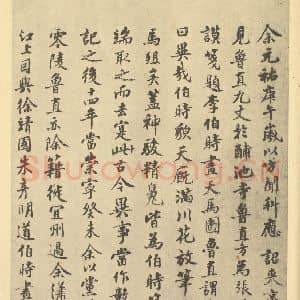 余元祐庚午歲以方聞科應詔來京
見魯直九丈於酺池寺魯直方為張
謨箋題李伯時畫天馬圖魯直謂
曰異哉伯時貌天廄滿川花放筆
馬殂矣蓋神駿精魄皆為伯時
端取之而去寔古今異事當作數
記之後十四年當崇寧癸未余以黨
零陵魯直亦除籍徙宜州過余瀟
江上因與徐靖國朱彥明道伯時畫